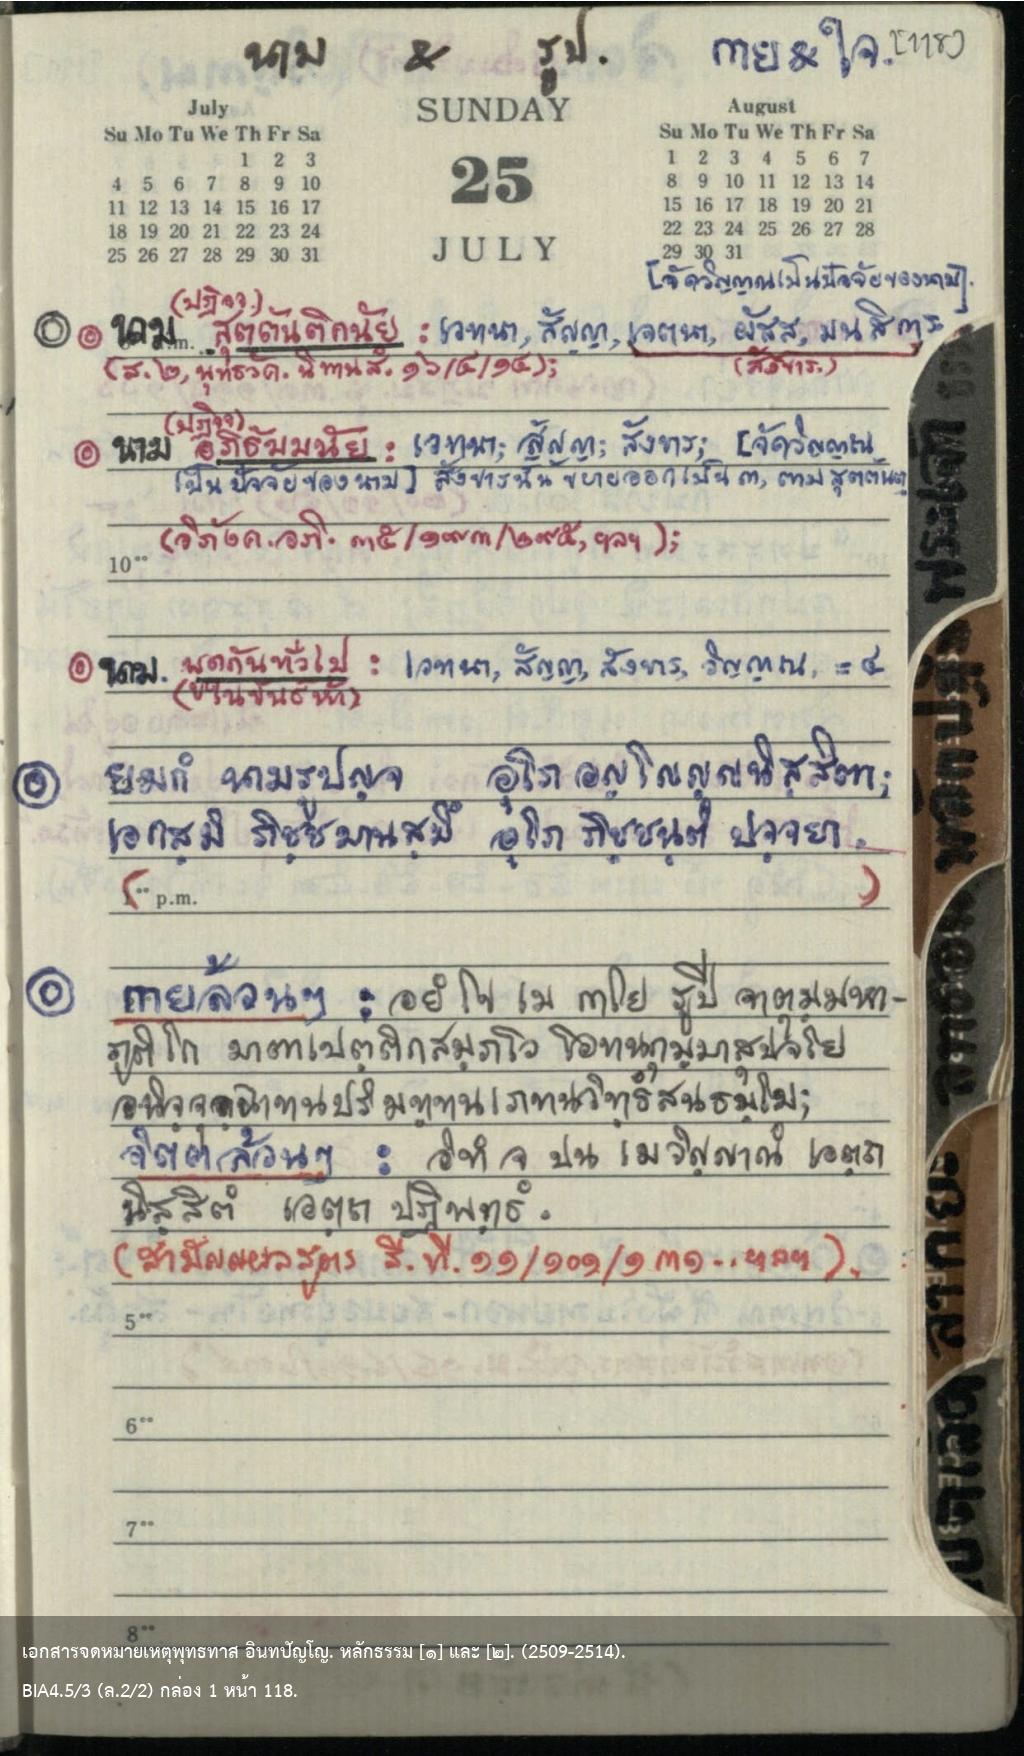 นาม & รูป. กาย & ใจ. [118]
July SUNDAY August
Su Mo Tu We Th Fr Sa 25 Su Mo Tu We Th Fr Sa
1 2 3 JULY 1 2 3 4 5 6 7
4 5 6 7 8 9 10 8 9 10 11 12 13 14
11 12 13 14 15 16 17 15 16 17 18 19 20 21
18 19 20 21 22 23 24 22 23 24 25 26 27 28
25 26 27 28 29 30 31 29 30 31
[จัดวิญญาณเป็นปัจจัยของนาม].
(ปฏิจจ)
นาม สุตตันติกนัย : เวทนา, สัญญา, เจตนา, ผัสส, มนสิการ
(ส. ๒, พุทธวัค. นิทานสํ. ๑๖/๔/๑๔); (สังขาร.)
(ปฏิจจ)
นาม อภิธัมมนัย : เวทนา; สัญญา; สังขาร; [จัดวิญญาณ
เป็นปัจจัยของนาม] สังขารนั้น ขยายออกเป็น ๓, ตามสุตตันต
(วิภังค. อภิ. ๓๕/๑๙๓/๒๙๕, ฯลฯ);
10°°
นาม. พูดกันทั่วไป : เวทนา, สัญญา, สังขาร, วิญญาณ, = ๔
(ในขันธ์ห้า)
ยมกํ นามรูปญฺจ อุโภ อญฺโญญฺญนิสฺสิตา;
เอกสฺมึ ภิชฺชมานสฺมึ อุโภ ภิชฺชนฺติ ปจฺจยา.
( 1°° p.m. )
กายล้วนๆ : อยํ โข เม กาโย รูปี จาตุมฺมหา-
ภูติโก มาตาเปตฺติกสมฺภโว โอทนกุมฺมาสุปจโย
อนิจฺจุจฺฉาทนปริมทฺทนเภทนวิทฺธํสนธมฺโม;
จิตต์ล้วนๆ : อิทํ จ ปน เม วิญฺญาณํ เอตฺถ
นิสฺสิตํ เอตฺถ ปฏิพทฺธํ.
(สามัญญผลสูตร สี. ที. ๑๑/๑๐๑/๑๓๑.. ฯลฯ).
5°°
6°°
7°°
8°°
เอกสารจดหมายเหตุพุทธทาส อินทปัญโญ. หลักธรรม [๑] และ [๒]. (2509-2514).
BIA4.5/3 (ล.2/2) กล่อง 1 หน้า 118.